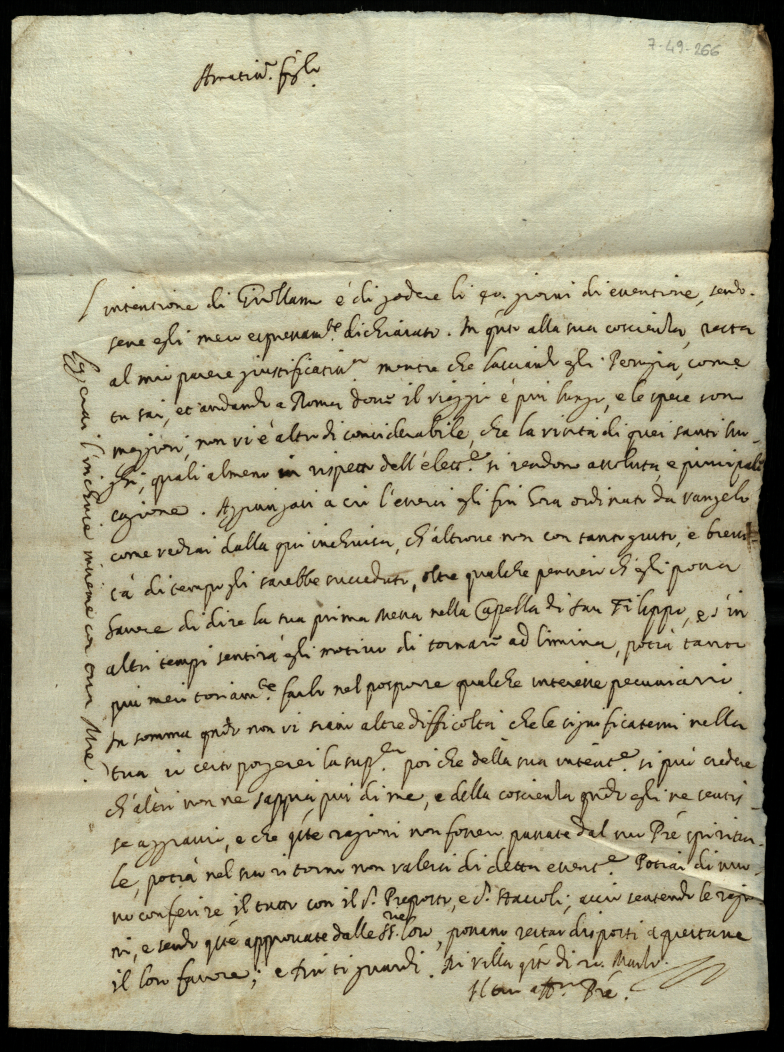 7-49-266
Amatis.o figlo
L'intentione di Girollamo è di godere li 40 giorni di eventione, sendo-
sene egli meco espressam.te dichiarato. In q.to alla sua coscienza, resta
al mio parere giustificatis.a mentre che lasciando egli Perugia, come
tu sai, et andando a Roma dove il viaggio è piu lungo, e le spese son
maggiori, non vi è altro di considerabile, che la visita di quei santi luo-
ghi, quali almeno in rispetto dell'
cazione. Aggiungasi a ciò l'esservi gli fin hora ordinato da vangelo
come vedrai dalla qui inchiusa, ch'altrove non con tanto gusto, e brevi-
tà di tempo gli sarebbe succeduto, oltre qualche pensiero ch'egli possa
havere di dire la sua prima Messa nella Capella di San Filippo, e s'in
altri tempi sentirà egli motivo di tornare ad limina, potrà tanto
piu meritoriam.te farlo nel posporre qualche interesse pecuniario.
In somma q.ndo non vi siano altre difficoltà che le significatemi nella
tua io certo porgerei la sup.ca poi che della sua intent.e si può credere
ch'altri non ne sappia piu di me, e della coscienza q.ndo egli ne sentis-
se aggravio, e che q.ste ragioni non fossero passate dal suo P.re spiritua-
le, potrà nel suo ritorno non valersi di detta event.e Potrai di nuo-
vo conferire il tutto con il S.r Preposto, e S.r Staccoli; acciò sentendo le ragio-
ni, e sendo q.ste approvate dalle SS.rie loro, possano restar disposti a prestarne
il lor favore; e Dio ti guardi. Di villa q.sto dì 20 Marzo.
Il tuo aff.mo P.re
Leggerai l'inchiuse insieme co tua M.re.